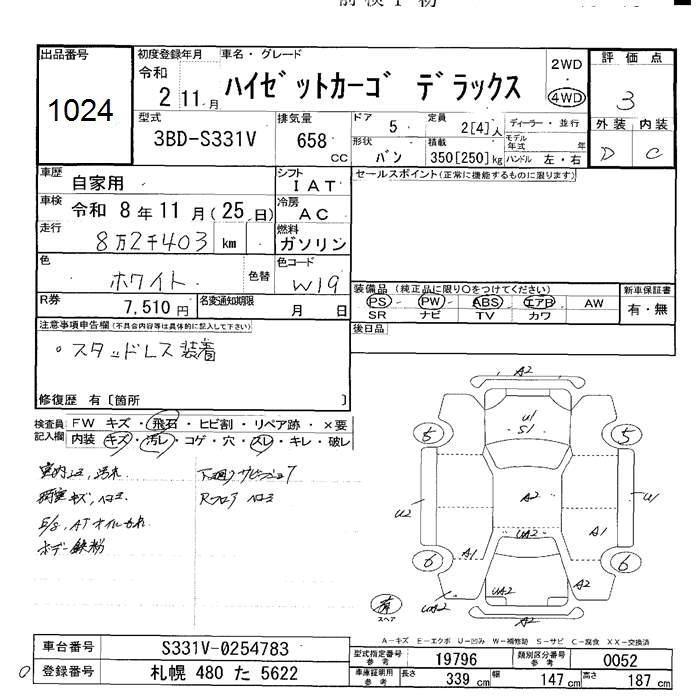 出品番号
1024
初度登録年月
令和
2 11 月
車名・グレード
ハイゼットカーゴ デラックス
2WD
・
4WD
評価点
3
型式
3BD-S331V
排気量
658
CC
ドア
5
定員
2[4]人
ディーラー・並行
形状
バン
積載
350[250]kg
モデル年式 年
ハンドル 左・右
外装 内装
D C
車歴
自家用
シフト
IAT
セールスポイント(正常に機能するものに限ります)
車検
令和 8年11月(25日)
冷房
AC
走行
8万2千403 km
燃料
ガソリン
色
ホワイト
色替
色コード
W19
装備品(純正品に限り○をつけてください)
PS PW ABS エアB AW
SR ナビ TV カワ
新車保証書
有・無
R券
7,510円
名変通知期限
月 日
後日品
注意事項申告欄(不具合内容等は具体的に記入して下さい)
・スタッドレス装着
修復歴 有〔箇所 〕
検査員記入欄
FW キズ・飛石・ヒビ割・リペア跡・×要
内装 キズ・汚レ・コゲ・穴・スレ・キレ・破レ
ボデー鉄粉
Rフロア ヘコミ
A2
U1
S1
5
5
A2
U2
W1
UA2
A1
A1
6
6
UA2
A2
UA2
A2
有
スペア
A-キズ E-エクボ U-凹み W-補修跡 S-サビ C-腐食 XX-交換済
車台番号
S331V-0254783
型式指定番号
参考
19796
類別区分番号
参考
0052
登録番号
札幌 480 た 5622
車庫証明用
参考
長さ
339 cm
幅
147 cm
高さ
187 cm